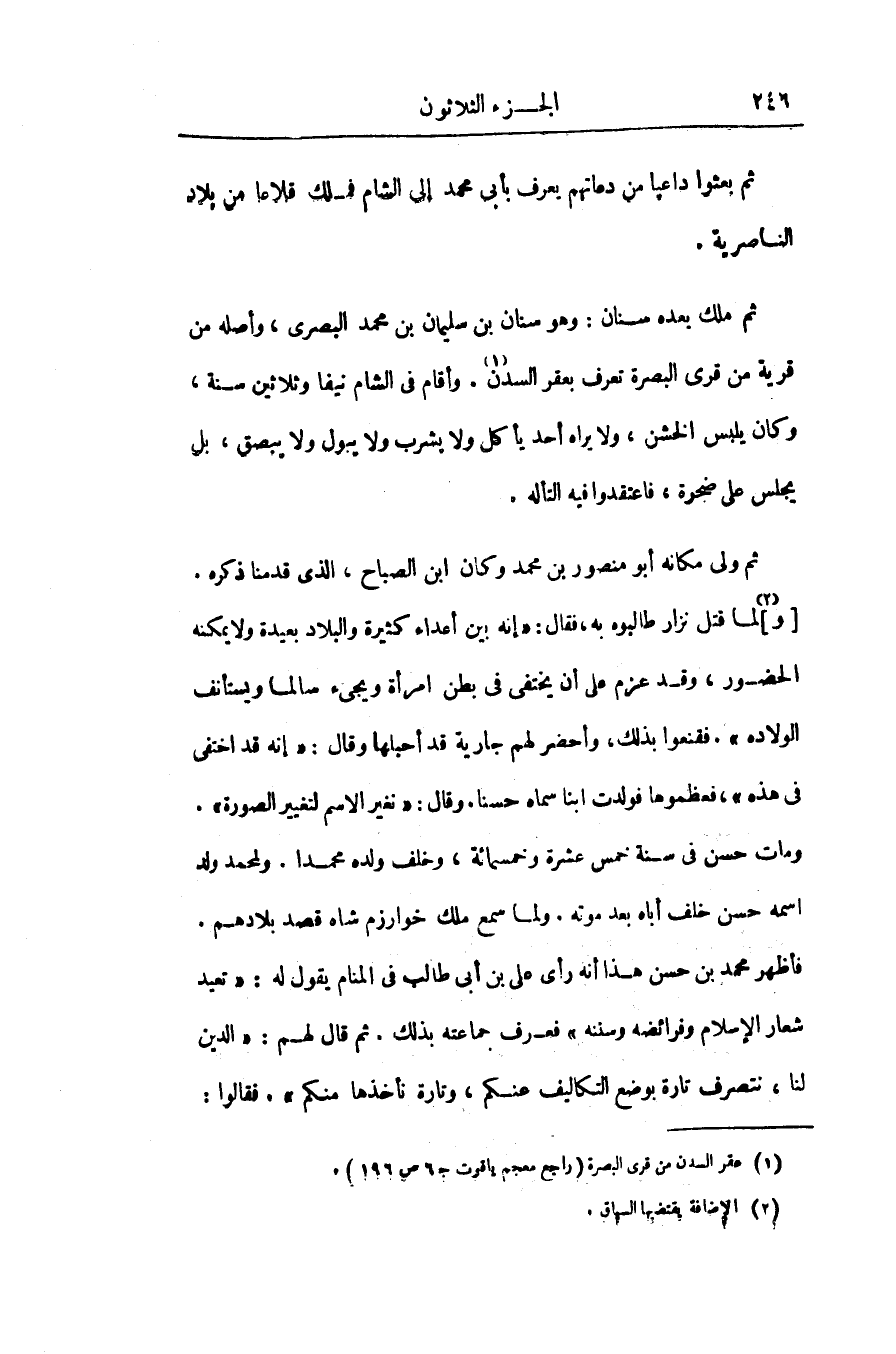 ٢٤٦
الجزء الثلاثون
ثم بعثوا داعيا من دعاتهم يعرف بأبى محمد إلى الشام فملك قلاعا من بلاد
الناصرية .
ثم ملك بعده سنان : وهو سنان بن سليمان بن محمد البصرى ، وأصله من
قرية من قرى البصرة تعرف بعقر السدن (١) . وأقام فى الشام نيفا وثلاثين سنة ،
وكان يلبس الخشن ، ولا يراه أحد يأكل ولا يشرب ولا يبول ولا يبصق ، بل
يجلس على ضخرة ، فاعتقدوا فيه التأله .
ثم ولى مكانه أبو منصور بن محمد وكان ابن الصباح ، الذى قدمنا ذكره .
[ و ] (٢) لما قتل نزار طالبوه به ، فقال : « إنه بين أعداء كثيرة والبلاد بعيدة ولا يمكنه
الحضور ، وقد عزم على أن يختفى فى بطن امرأة ويجىء سالما ويستأنف
الولاده » . فقنعوا بذلك ، وأحضر لهم جارية قد أحبلها وقال : « إنه قد اختفى
فى هذه » ، فعظموها فولدت ابنا سماه حسنا . وقال : « نغير الاسم لتغيير الصورة » .
ومات حسن فى سنة خمس عشرة وخمسمائة ، وخلف ولده محمدا . ولمحمد ولد
اسمه حسن خلف أباه بعد موته . ولما سمع ملك خوارزم شاه قصد بلادهم .
فأظهر محمد بن حسن هذا أنه رأى على بن أبى طالب فى المنام يقول له : « تعيد
شعار الإسلام وفرائضه وسننه » فعرف جماعته بذلك . ثم قال لهم : « الدين
لنا ، نتصرف تارة بوضع التكاليف عنكم ، وتارة نأخذها منكم » . فقالوا :
(١) عقر السدن من قرى البصرة ( راجع معجم ياقوت ج ٦ ص ١٩٦ ) .
(٢) الإضافة يقتضيها السياق .